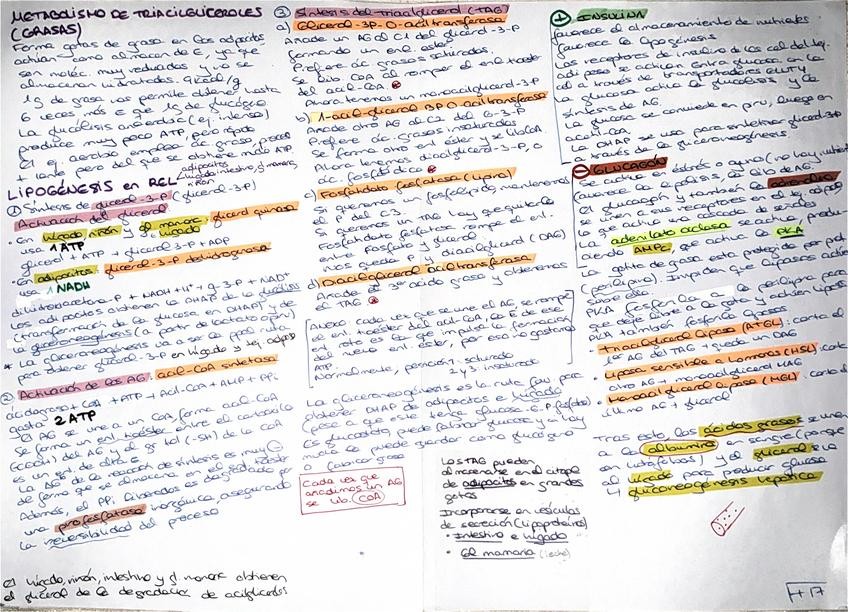 METABOLISMO DE TRIACILGLICEROLES
(GRASAS)
Forma gotas de grasa en los adipocitos
actúan como almacén de E, ya que
son moléc. muy reducidas y no se
almacenan hidratadas. 9kcal/g
1g de grasa nos permite obtener hasta
6 veces más E que 1g de glucógeno
La glucólisis anaerobia (ej. intenso)
produce muy poco ATP, pero rápido
El ej. aerobio emplea ác. graso, poco
+ lento pero del que se obtiene mucho ATP
LIPOGÉNESIS en REL
adipocitos
hígado, intestino, gl. mamaria,
riñón
① Síntesis de glicerol-3-P (glicerol-3-P)
Activación del glicerol
· En hígado, riñón y gl. mamaria: glicerol quinasa
usa 1 ATP
glicerol + ATP → glicerol-3-P + ADP
· En adipocitos: glicerol-3-P deshidrogenasa
usa 1 NADH
dihidroxiacetona-P + NADH + H⁺ → g-3-P + NAD⁺
Los adipocitos obtienen la DHAP de la glucólisis
(transformación de la glucosa en DHAP) y de
la gliceroneogénesis (a partir de lactato o piru)
* La gliceroneogénesis va a ser la ppal ruta
para obtener glicerol-3-P en hígado y tej. adiposo
② Activación de los AG: acil-CoA sintetasa
ácido graso + CoA + ATP → Acil-CoA + AMP + PPi
gasta 2 ATP
El AG se une a un CoA, forma acil-CoA
Se forma un enl. tioéster entre el carboxilo
(COOH) del AG y el gr tiol (-SH) de la CoA
es un enl. de alta E
La AG de la reacción de síntesis es muy ⊖
de forma que se almacena en el enl. tioéster
Además, el PPi liberado es degradado por
una pirofosfatasa inorgánica, asegurando
la irreversibilidad del proceso
El hígado, riñón, intestino y gl. mamaria obtienen
el glicerol de la degradación de acilglicéridos
③ Síntesis del Triacilglicerol (TAG)
a) Glicerol-3P-O-acil transferasa
Añade un AG al C1 del glicerol-3-P
formando un enl. éster
Prefiere ác grasos saturados.
Se lib CoA al romper el enl tioéster
del acil-CoA.
Ahora tenemos un monoacilglicerol-3-P
b) 1-acil-glicerol-3P O-aciltransferasa
Añade otro AG al C2 del G-3-P
Prefiere ác. grasos insaturados
Se forma otro enl éster y se lib CoA
Ahora tenemos diacilglicerol-3-P, o
ác. fosfatídico
c) Fosfatidato fosfatasa (Lipina)
Si queremos un fosfolípido, mantenemos
el P del C3.
Si queremos un TAG hay que quitarlo
Fosfatidato fosfatasa rompe el enl.
entre fosfato y glicerol
nos queda P y diacilglicerol (DAG)
d) Diacilglicerol aciltransferasa
Añade el 3er ácido graso y obtenemos
el TAG
Ahora cada vez que se une el AG, se rompe
el enl. tioéster del acil CoA, la E de ese
enl. roto es la que impulsa la formación
del nuevo enl. éster, por eso no gastamos
ATP.
Normalmente, posición 1: saturado
2 y 3: insaturados
La gliceroneogénesis es la ruta fav para
obtener DHAP de adipocitos e hígado
(pese a que este tenga glucosa-6-P fosfatasa)
(si glucólisis), puede fabricar glucosa y si hay
mucha la puede guardar como glucógeno
o fabricar grasa
Cada vez que
añadimos un AG
se lib. COA
LOS TAG pueden
almacenarse en el citopl.
de adipocitos en grandes
gotas
Incorporarse en vesículas
de secreción (lipoproteínas)
· Intestino e hígado
· Gl mamaria (leche)
⊕ INSULINA
favorece el almacenamiento de nutrientes
favorece la lipogénesis
Los receptores de insulina de las cél del tej.
adiposo se activan. Entra glucosa en la
cél a través de transportadores GLUT4
La glucosa activa la glucólisis y la
síntesis de AG.
La glucosa se convierte en piru, luego en
acetil-CoA
La DHAP se usa para sintetizar glicerol-3P
a través de la gliceroneogénesis
⊖ GLUCAGÓN
Se activa en estrés o ayuno (no hay nutrientes)
favorece la lipólisis, la lib de AG.
El glucagón y también la adrenalina
se unen a sus receptores en el tej adiposo
lo que activa una cascada de señales
La adenilato ciclasa se activa, produ-
ciendo AMPc, que activa la PKA
La gotita de grasa está protegida por prot
(perilipina). Impiden que lipasas actúen
sobre ella
PKA fosforila a la perilipina para
que deje libre a la gota y actúen lipasas
PKA también fosforila lipasas
· Triacilglicerol lipasa (ATGL): corta
1er AG del TAG y queda un DAG
· Lipasa sensible a hormonas (HSL): corta
otro AG → monoacilglicerol MAG
· Monoacilglicerol lipasa (MGL): corta el
último AG → glicerol
Tras esto, los ácidos grasos se unen
a la albúmina en sangre (porque
son lipófobos) y el glicerol se va
al hígado para producir glucosa
↳ gluconeogénesis hepática